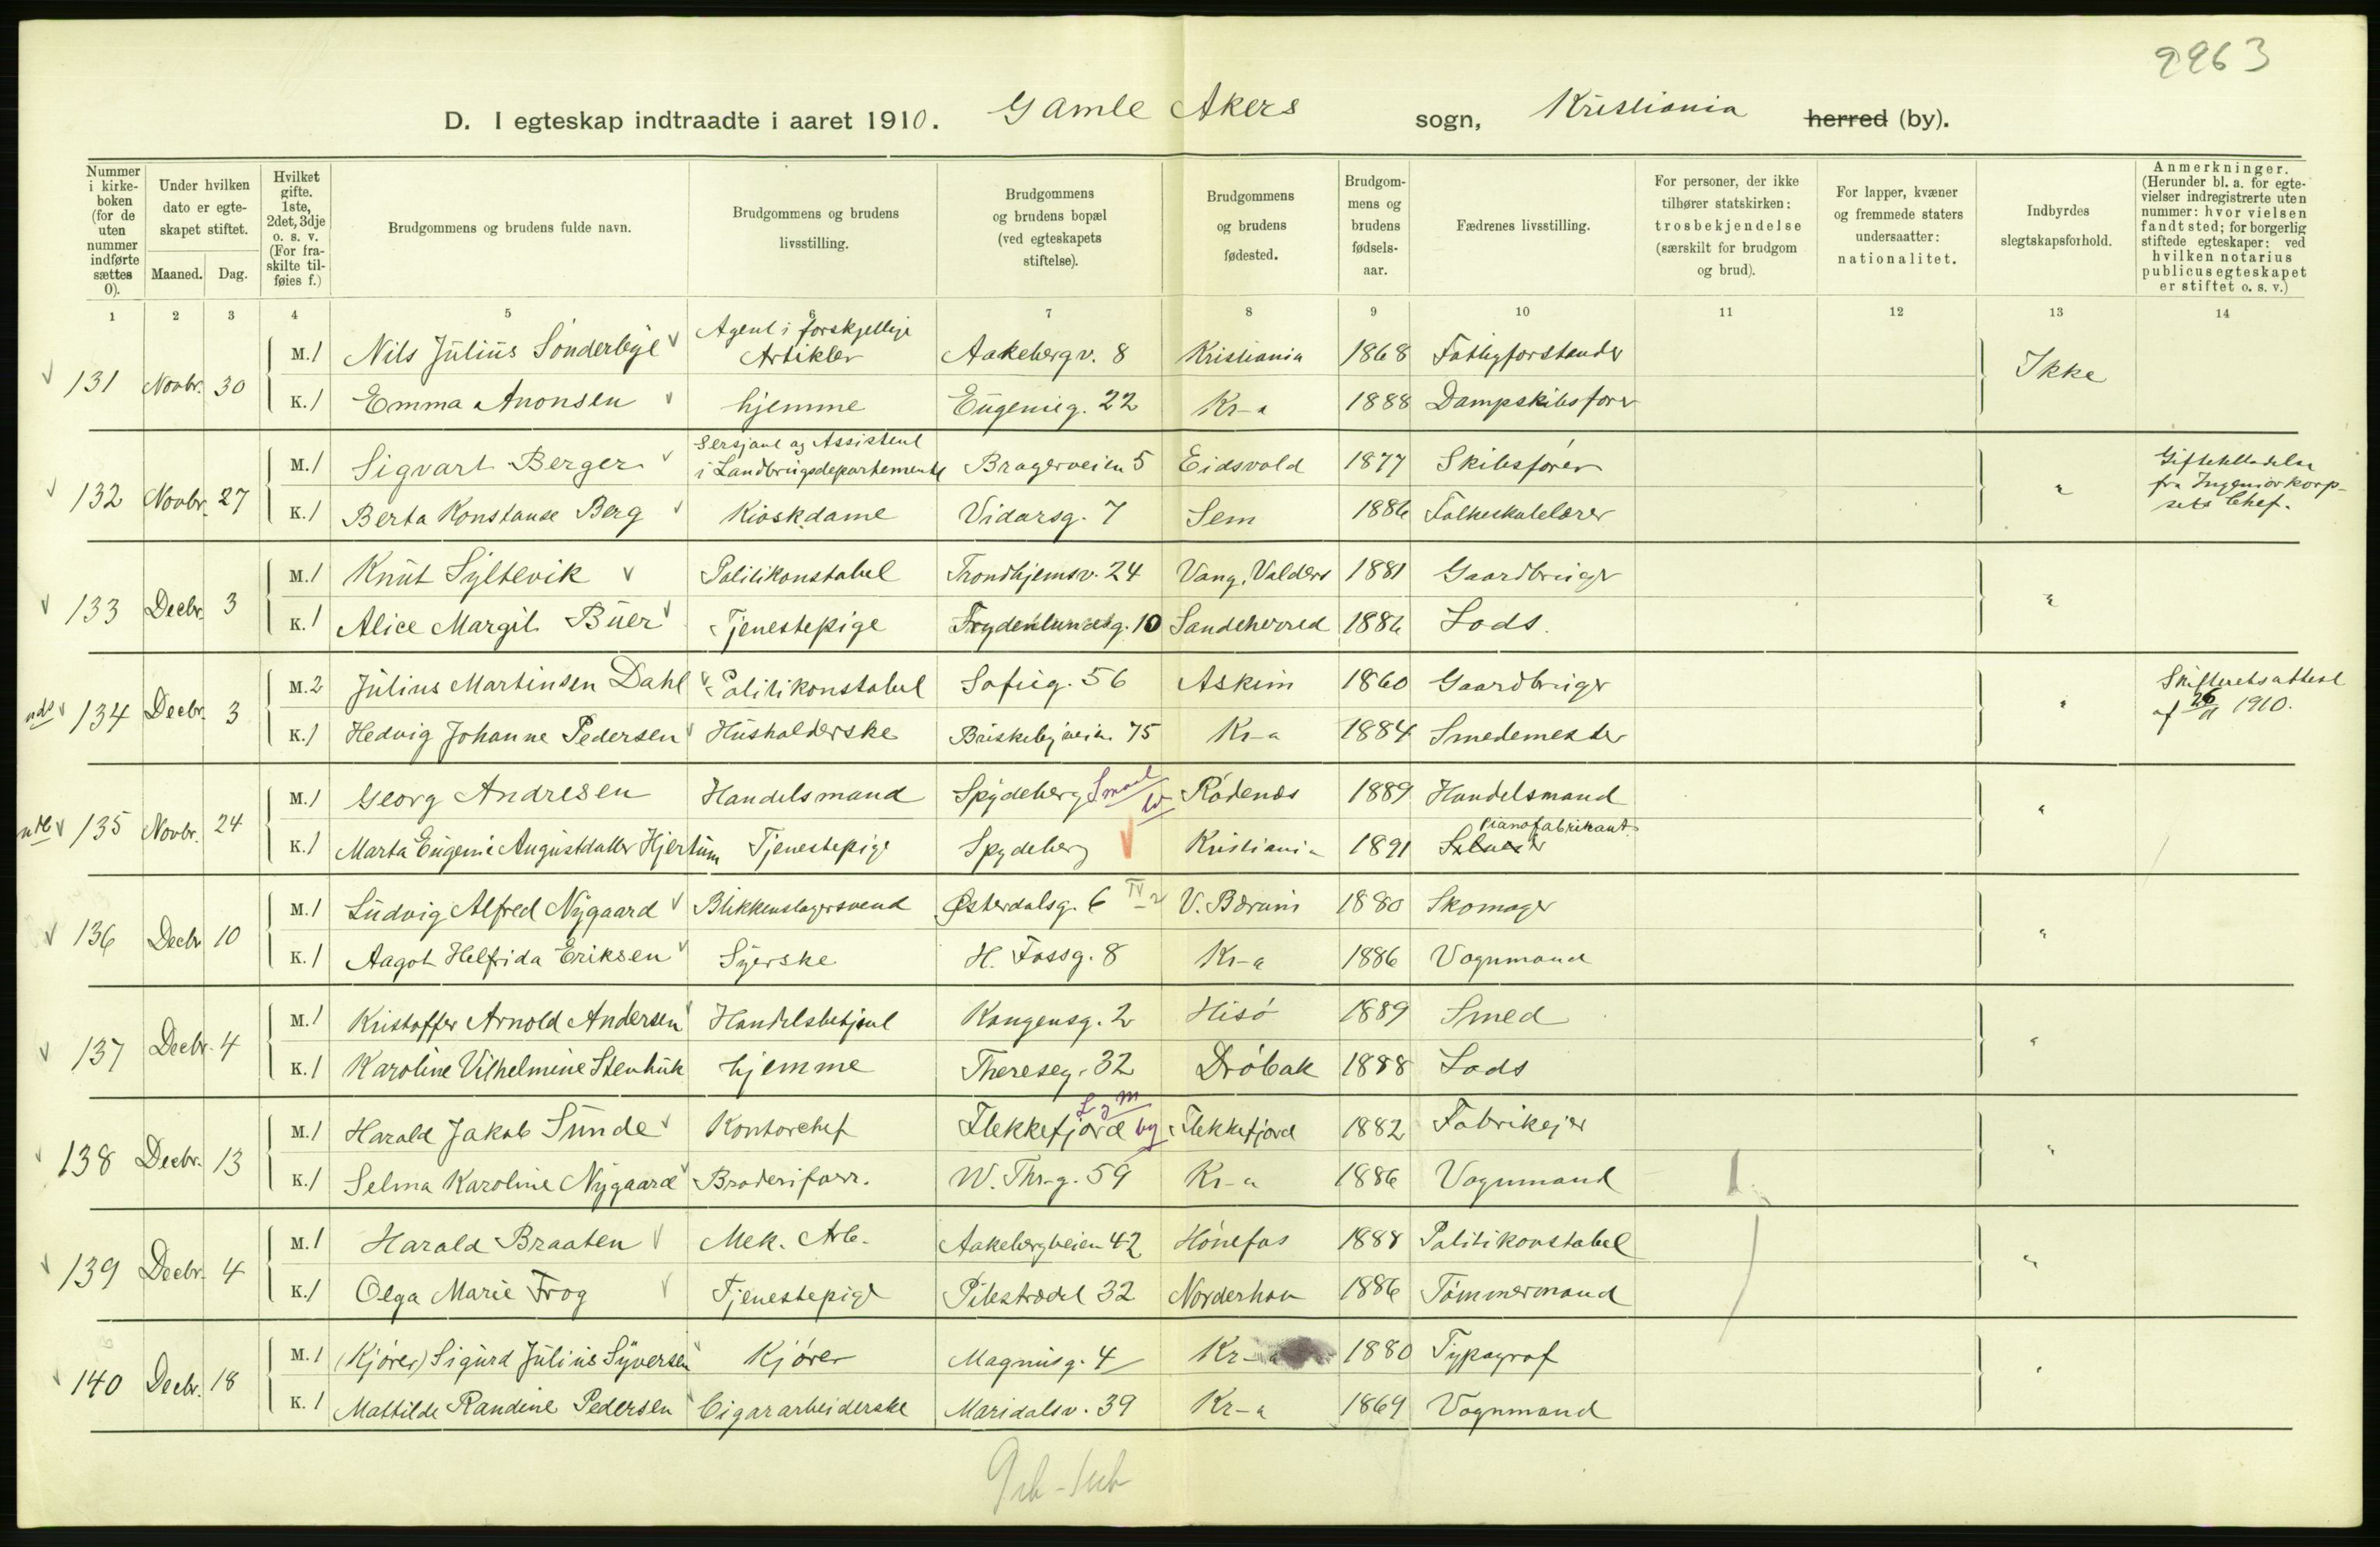 9963
D. I egteskap indtraadte i aaret 1910. Gamle Akers sogn, Kristiania herred (by).
Nummer i kirke-boken (for de uten nummer indførte sættes 0).
Under hvilken dato er egte-skapet stiftet.
Maaned. Dag.
Hvilket gifte. 1ste, 2det, 3dje o. s. v. (For fra-skilte til-føies f.)
Brudgommens og brudens fulde navn.
Brudgommens og brudens livsstilling.
Brudgommens og brudens bopæl (ved egteskapets stiftelse).
Brudgommens og brudens fødested.
Brudgom-mens og brudens fødsels-aar.
Fædrenes livsstilling.
For personer, der ikke tilhører statskirken: trosbekjendelse (særskilt for brudgom og brud).
For lapper, kvæner og fremmede staters undersaatter: nationalitet.
Indbyrdes slegtskapsforhold.
Anmerkninger. (Herunder bl. a. for egte-vielser indregistrerte uten nummer: hvor vielsen fandt sted; for borgerlig stiftede egteskaper: ved hvilken notarius publicus egteskapet er stiftet o. s. v.)
1 2 3 4 5 6 7 8 9 10 11 12 13 14
131 Novbr. 30 M. 1 Nils Julius Sönderbye Agent i forskjellige Artikler Aakebergv. 8 Kristiania 1868 Fattigforstander Ikke
K. 1 Emma Anonsen hjemme Eugenieg. 22 Kr-a 1888 Dampskibsförer
132 Novbr. 27 M. 1 Sigvart Berger Sersjant og Assistent i Landbrugsdepartementet Bragerveien 5 Eidsvold 1877 Skibsförer " Giftetilladelse fra Ingeniörkorp-sets Chef.
K. 1 Berta Konstanse Berg Kioskdame Vidarsg. 7 Sem 1886 Folkeskolelærer
133 Decbr. 3 M. 1 Knut Syltevik Politikonstabel Trondhjemsv. 24 Vang, Valders 1881 Gaardbruger "
K. 1 Alice Margit Buer Tjenestepige Frydenlundsg. 10 Sandeherred 1886 Lods.
134 Decbr. 3 M. 2 Julius Martinsen Dahl Politikonstabel Sofieg. 56 Askim 1860 Gaardbruger " Skifteretsattest af 26/11 1910.
K. 1 Hedvig Johanne Pedersen Husholderske Briskebyveien 75 Kr-a 1884 Smedemester
135 Novbr. 24 M. 1 Georg Andresen Handelsmand Spydeberg Smaal Rödenes 1889 Handelsmand "
K. 1 Marta Eugenie Augustdatter Hjertum Tjenestepige Spydeberg Kristiania 1891 pianofabrikant.
136 Decbr 10 M. 1 Ludvig Alfred Nygaard Blikkenslagersvend Østerdalsg. 6 IV V. Bærum 1880 Skomager "
K. 1 Aagot Helfrida Eriksen Syerske H. Fossg. 8 Kr-a 1886 Vognmand
137 Decbr. 4 M. 1 Kristoffer Arnold Andersen Handelsbetjent Kongensg. 2 Hisö 1889 Smed "
K. 1 Karoline Vilhelmine Stenhuk hjemme Thereseg. 32 Dröbak 1888 Lods
138 Decbr. 13 M. 1 Harald Jakob Sunde Kontorchef Flekkefjord L & M by Flekkefjord 1882 Fabrikejer "
K. 1 Selma Karoline Nygaard Broderiforr. W. Thr-g. 59 Kr-a 1886 Vognmand
139 Decbr. 4 M. 1 Harald Braaten Mek. Arb. Aakebergveien 42 Hönefos 1888 Politikonstabel "
K. 1 Olga Marie Frog Tjenestepige Pilestrædet 32 Norderhov 1886 Tömmermand
140 Decbr. 18 M. 1 (Kjörer) Sigurd Julius Syversen Kjörer Magnusg. 4 Kr-a 1880 Typograf "
K. 1 Mathilde Randine Pedersen Cigararbeiderske Maridalsv. 39 Kr-a 1869 Vognmand